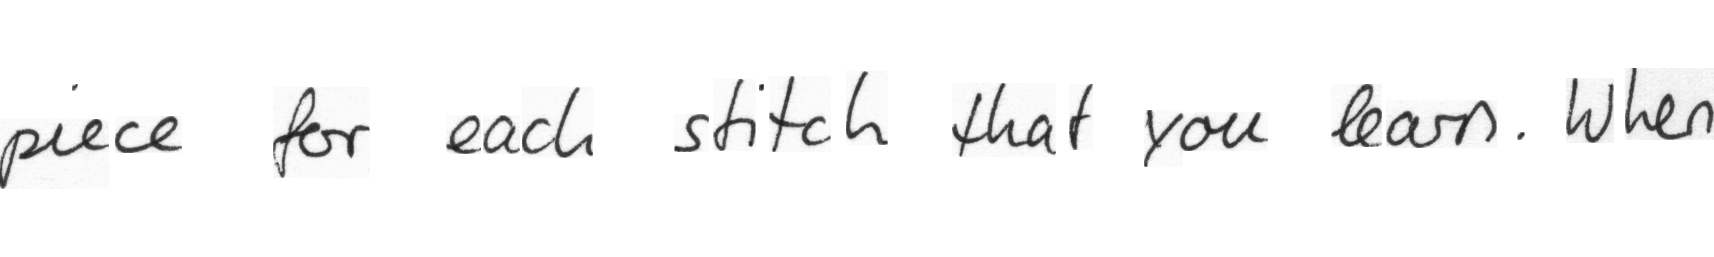 piece for each stitch that you learn. When